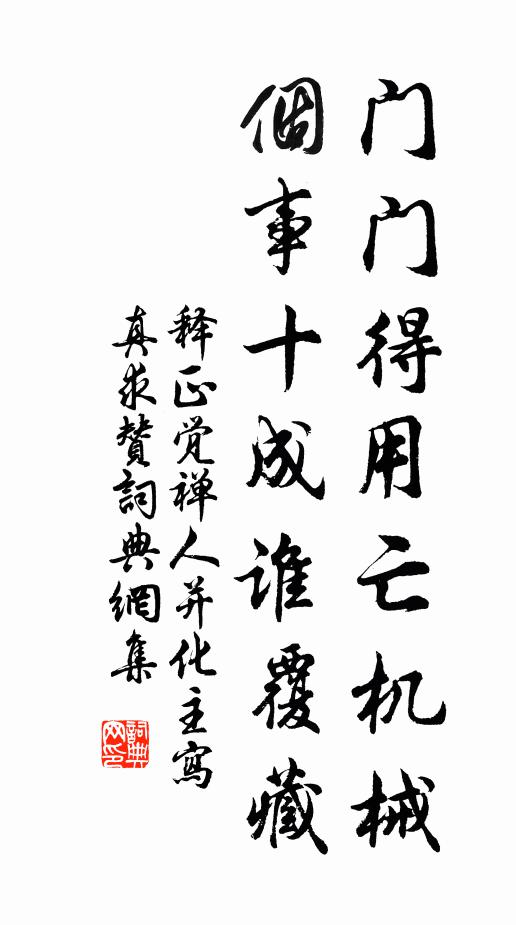 门门得用亡机械
個事十成谁覆藏
释正觉禅人并化主寫
真求赞詞典網集
詞典网印